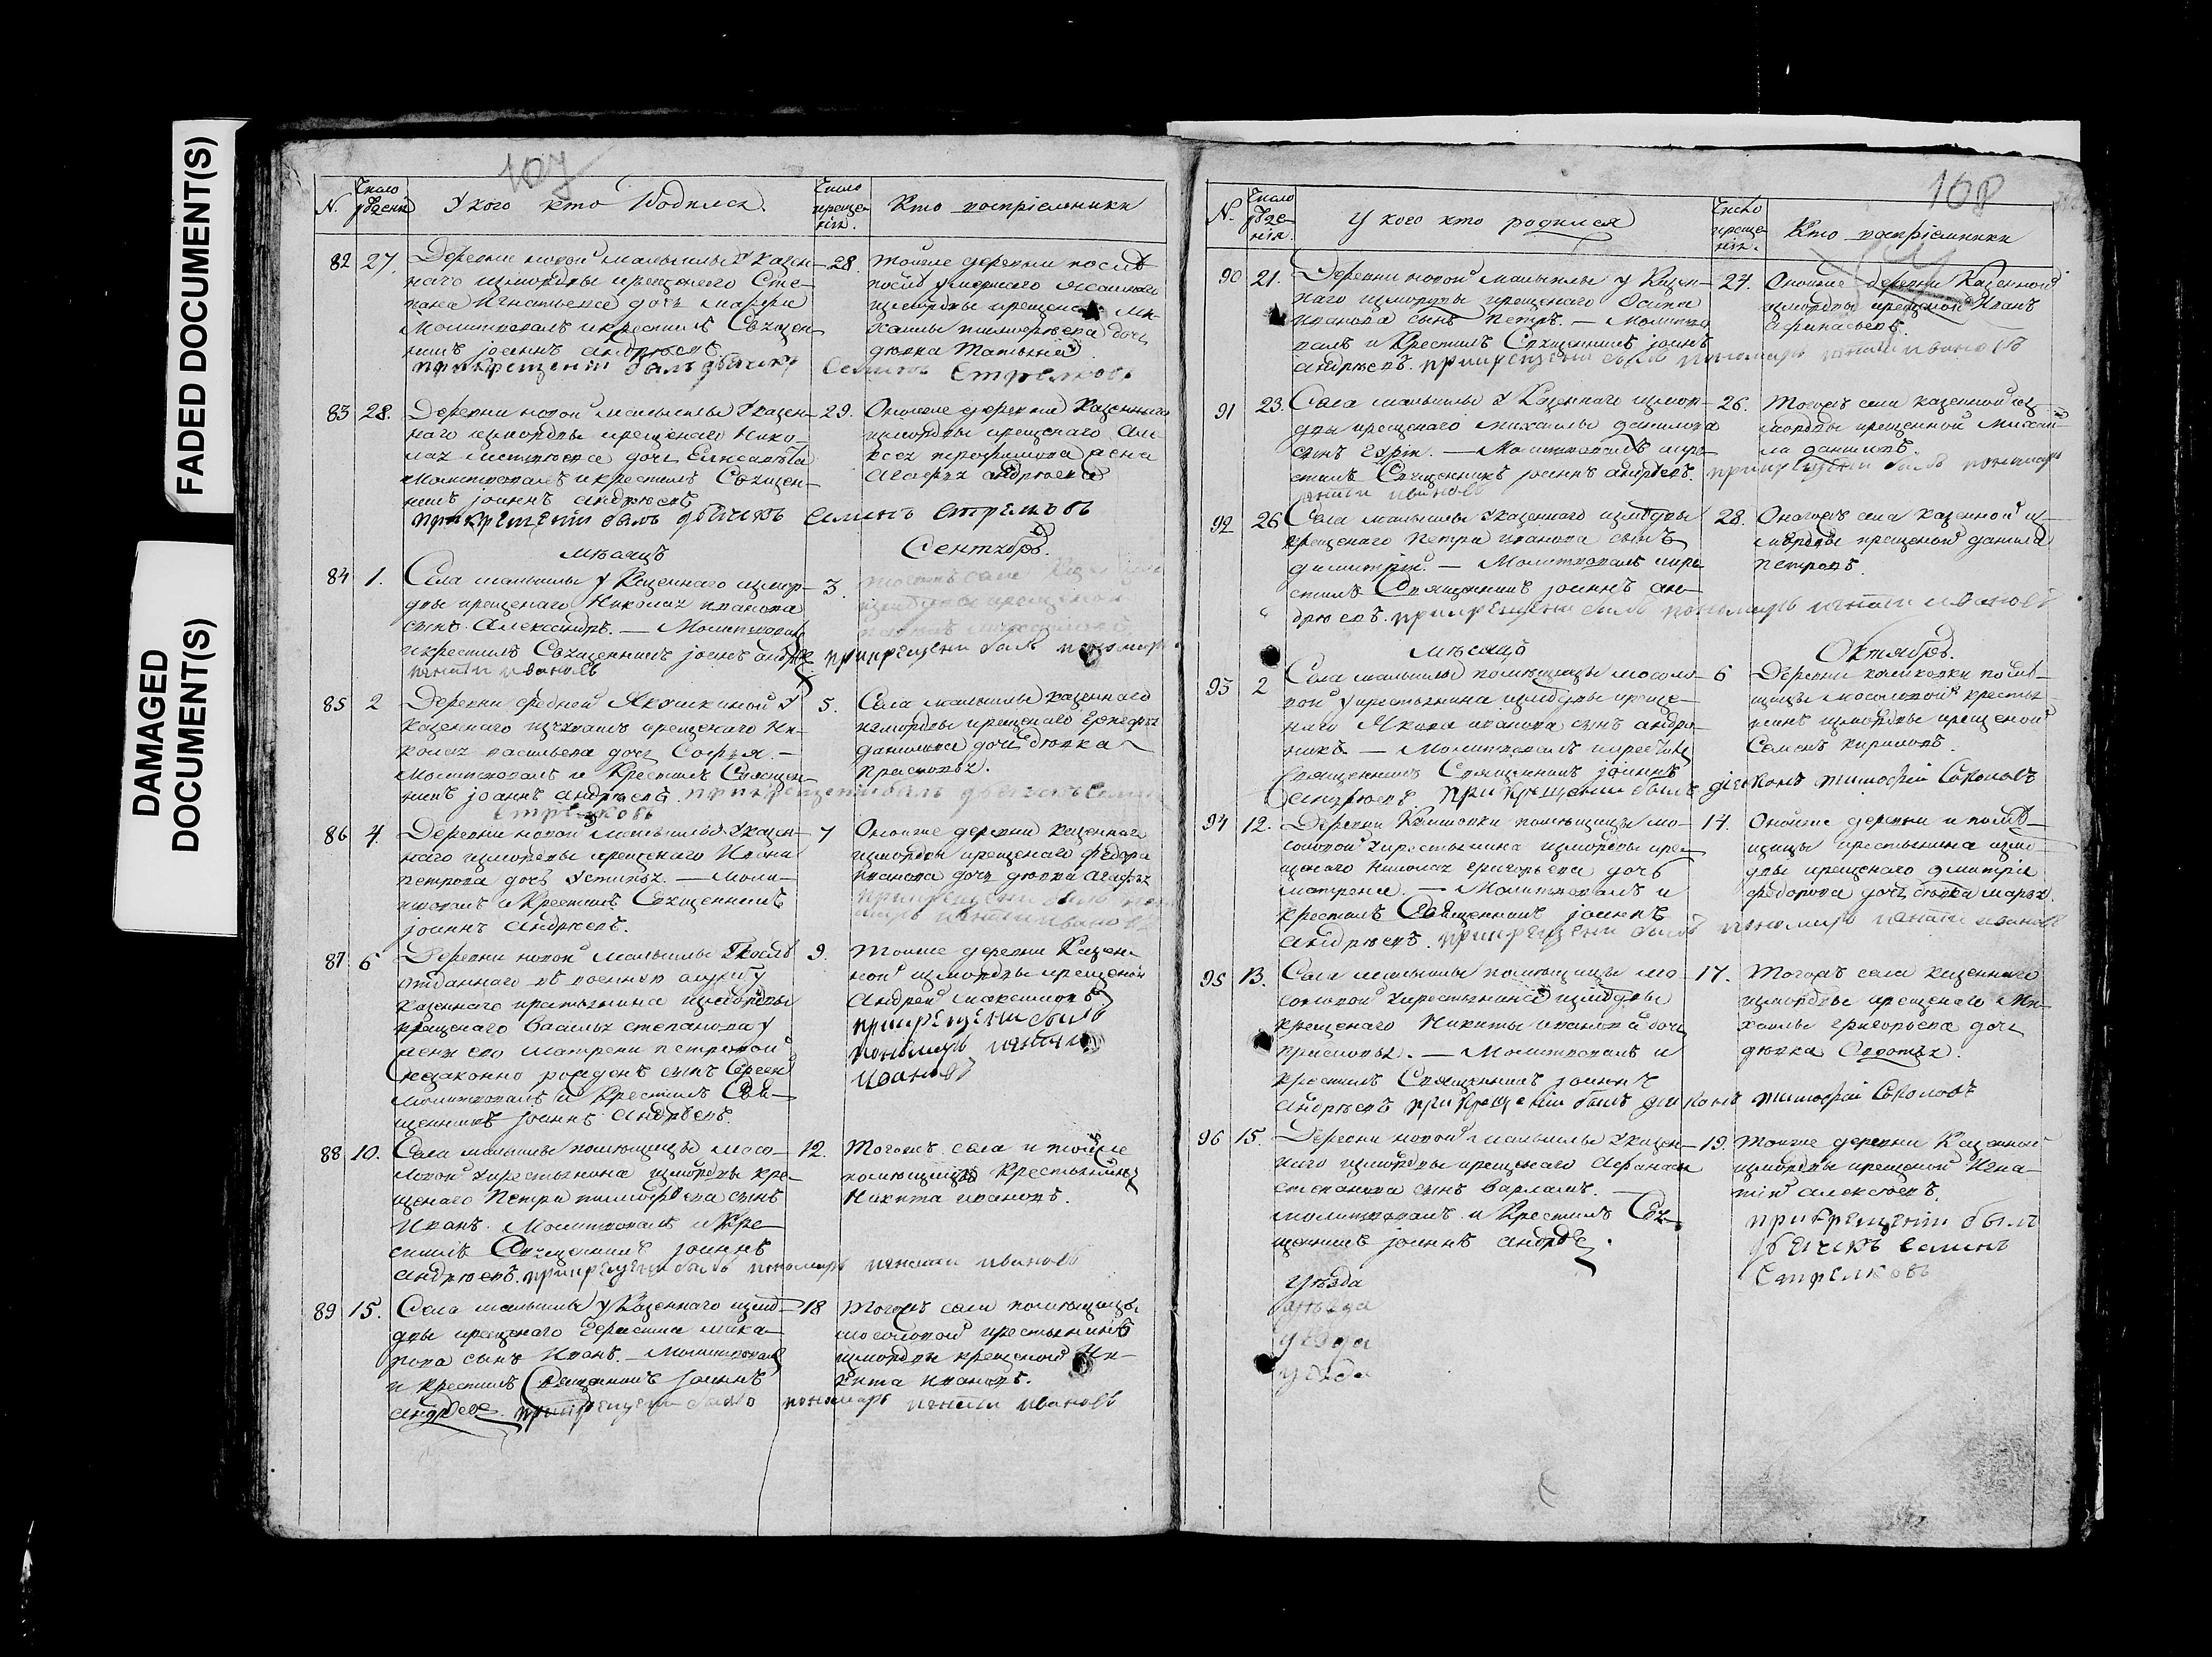 FADED DOCUMENT(S)
DAMAGED
DOCUMENT(S)
107
N.
Число
рожденія
У кого кто родился.
Число
креще-
нія.
Кто воспріемники
82 27. Деревни новой малыклы У казен-
наго измордвы крещенаго Сте-
пана Игнатьева дочь марфа
Молитвовалъ и крестилъ Священ-
никъ іоаннъ андрѣевъ
при крещеніи былъ дьячикъ Семенъ Стрелковъ
28. тойже деревни
измордвы
дочь
дѣвка Татьяна
83 28. Деревни новой малыклы У казен-
наго измордвы крещенаго Нико-
лая дочь Елисавѣта
молитвовалъ и крестилъ Священ-
никъ іоаннъ андрѣевъ
при крещеніи былъ дьячекъ семенъ стрелковъ
29. Оноиже деревни казеннаго
измордвы крещенаго Але-
ксея жена
Агафья андрѣева
мѣсяцъ Сентябрь.
84 1. Села малыклы У казеннаго измор-
двы крещенаго Николая иванова
сынъ Александръ. — Молитвовалъ
и крестилъ Священникъ іоаннъ андрѣе
при крещени былъ пономарь
игнати ивановъ
3. тогожъ села
измордвы крещеной
85 2 Деревни средней Якушкиной У
казеннаго изчювашъ крещенаго Ни-
колая васильева дочь Софья. —
Молитвовалъ и Крестилъ Священ-
никъ іоаннъ андрѣевъ. при крещеніи былъ дьячекъ семенъ
стрелковъ
5. Села малыклы казеннаго
измордвы крещенаго
данилова дочь дѣвка
прасковья.
86 4. Деревни новой малыклы У казен-
наго измордвы крещенаго Ивана
петрова дочь Устинья. — Моли-
твовалъ и Крестилъ Священникъ
іоаннъ андрѣевъ.
7 Оноиже деревни казеннаго
измордвы крещенаго федора
иванова дочь дѣвка агафья
при крещени былъ поно
марь игнати ивановъ
87 6 Деревни новой малыклы У послѣ
отданнаго въ военную службу
казеннаго крестьянина измордвы
крещенаго василья степанова у
жены его матрены петровой
незаконно рожденъ сынъ Сергей
молитвовалъ и Крестилъ Свя-
щенникъ іоаннъ андрѣевъ.
9. тоиже деревни Казен-
ной измордвы крещеной
Андрей максимовъ
при крещени былъ
пономарь игнати
ивановъ
88 10. Села малыклы помѣщицы мосо-
ловой У крестьянина измордвы кре-
щенаго Петра тимофѣева сынъ
Иванъ. Молитвовалъ и Кре-
стилъ Священникъ іоаннъ
андрѣевъ. при крещени былъ пономарь игнати ивановъ
12. Тогожъ села и тоиже
помѣщицы крестьянинъ
Никита ивановъ.
89 15. Села малыклы У казеннаго измо-
рдвы крещенаго Герасима мака-
рова сынъ Иванъ. — Молитвовалъ
и крестилъ Священникъ іоаннъ
андрѣевъ при крещени былъ пономарь игнати ивановъ
18 Тогожъ села помѣщицы
мосоловой крестьянинъ
измордвы крещеной Ни-
кита ивановъ.
168
N.
Число
рожде-
нія.
У кого кто родился
Число
креще-
нія.
Кто воспріемники
90 21. Деревни новой малыклы у Казен-
наго измордвы крещенаго Осипа
иванова сынъ петръ. — Молитво
валъ и Крестилъ Священникъ іоаннъ
андрѣевъ. при крещени былъ пономарь игнати ивановъ
24. Оноиже деревни Казенной
измордвы крещеной Иванъ
афанасьевъ
91 23. Села малыклы У Казеннаго измор-
двы крещенаго михаилы данилова
сынъ — Молитвовалъ и кре-
стилъ Священникъ іоаннъ андрѣевъ. при крещени былъ пономарь
игнати ивановъ
26. Тогожъ села казенной из-
мордвы крещенной михаи-
ла даниловъ.
92 26 Села малыклы У казеннаго измордвы
крещенаго Петра иванова сынъ
димитрій. — Молитвовалъ и кре-
стилъ Священникъ іоаннъ ан-
дрѣевъ. при крещени былъ пономарь игнати ивановъ
28. Оногожъ села казенной из-
мордвы крещеной данила
петровъ.
мѣсяцъ Октябрь.
93 2 Села малыклы помѣщицы мосоло-
вой у крестьянина измордвы креще-
наго Якова иванова сынъ андро-
никъ — Молитвовалъ и крестилъ
Священникъ Священникъ іоаннъ
андрѣевъ при крещеніи былъ діаконъ тимофей Соколовъ
6 Деревни камшовки помѣ-
щицы мосоловой кресть-
янинъ измордвы крещеной
Семенъ кириловъ.
94 12. Деревни Камшовки помѣщицы мо-
соловой У крестьянина измордвы кре-
щенаго Николая григорьева дочь
матрена. — Молитвовалъ и
крестилъ Священникъ іоаннъ
андрѣевъ. при крещени былъ пономарь игнати ивановъ
14. Оноиже деревни и помѣ-
щицы крестьянина измо-
рдвы крещенаго дмитрія
федорова дочь дѣвка марья.
95 13. Села малыклы помѣщицы мо-
соловой У крестьянина измордвы
крещенаго Никиты иванова дочь
прасковья. — Молитвовалъ и
крестилъ Священникъ іоаннъ
андрѣевъ при крещеніи былъ діаконъ тимофей Соколовъ
17. Тогожъ села казеннаго
измордвы крещенаго Ми-
хаилы григорьева дочь
дѣвка Авдотья.
96 15. Деревни новой малыклы У казен-
наго измордвы крещенаго Афанасья
степанова сынъ варламъ.
молитвовалъ и Крестилъ Свя-
щенникъ іоаннъ андрѣе
19. Тоиже деревни Казенной
измордвы крещеной Игна-
тій алексѣевъ.
при крещеніи былъ
дьячекъ семенъ
Стрелковъ
уѣзда
уѣзда
уѣзда
уѣзда